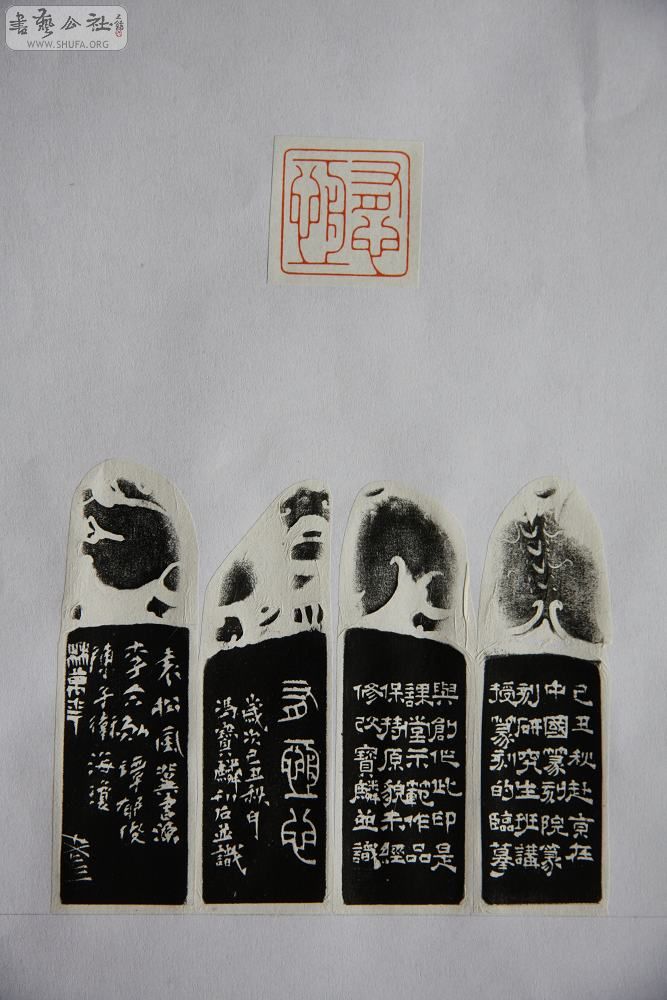 書藝公社
WWW.SHUFA.ORG
己丑秋赴京在
中國篆刻院篆
刻研究生班講
授篆刻的臨摹
與創作此印是
課堂示範作品
保持原貌未經
修改寶麟並識
歲次己丑秋月
馮寶麟石並識
袁松風冀書源
李譚郁俊
傅子衛海瓊